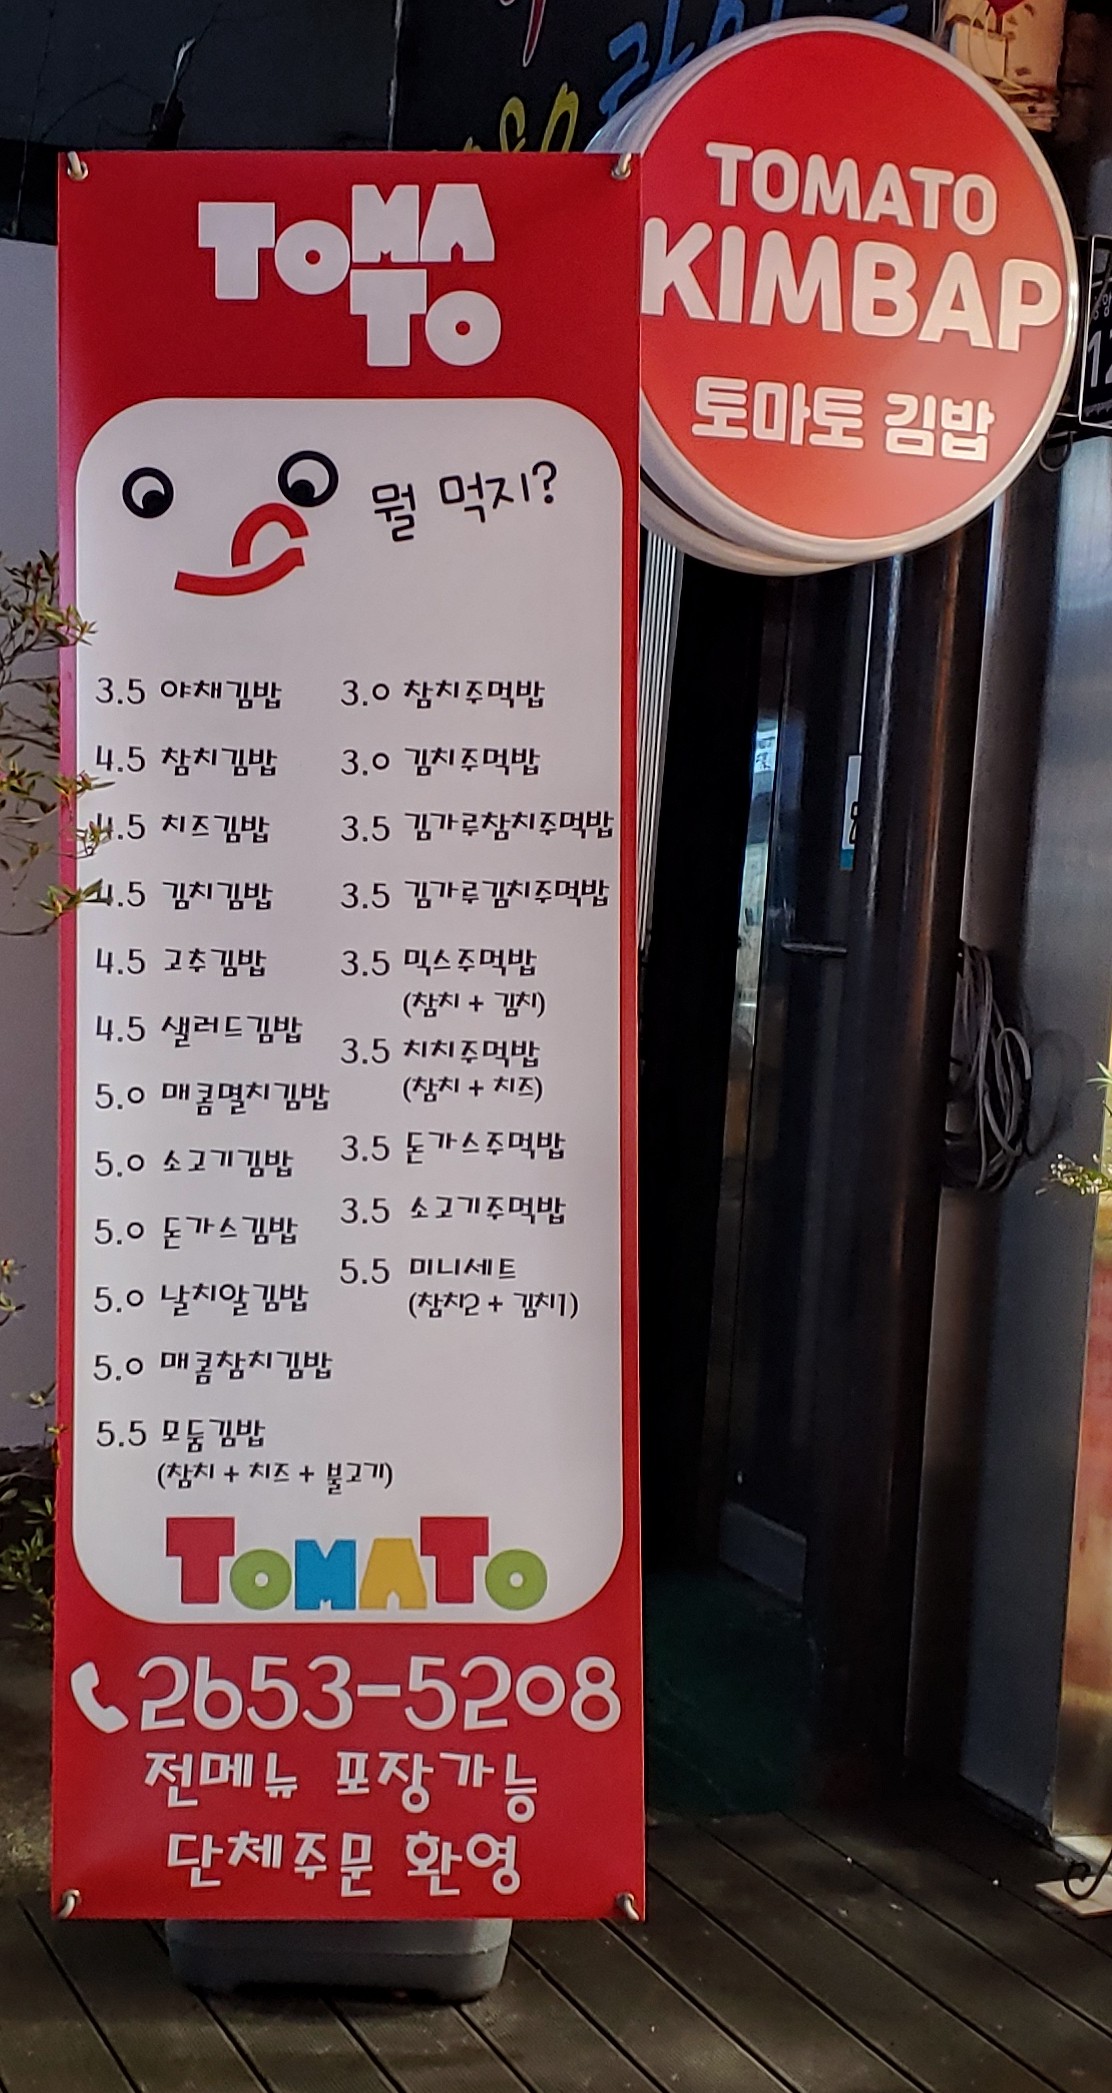 TOMA
TO
뭘 먹지?
3.5 야채김밥
4.5 참치김밥
4.5 치즈김밥
4.5 김치김밥
4.5 고추김밥
4.5 샐러드김밥
5.0 매콤멸치김밥
5.0 소고기김밥
5.0 돈가스김밥
5.0 날치알김밥
5.0 매콤참치김밥
5.5 모둠김밥
(참치 + 치즈 + 불고기)
3.0 참치주먹밥
3.0 김치주먹밥
3.5 김가루참치주먹밥
3.5 김가루김치주먹밥
3.5 믹스주먹밥
(참치 + 김치)
3.5 치치주먹밥
(참치 + 치즈)
3.5 돈가스주먹밥
3.5 소고기주먹밥
5.5 미니세트
(참치2 + 김치1)
TOMATO
2653-5208
전메뉴 포장가능
단체주문 환영
TOMATO
KIMBAP
토마토 김밥